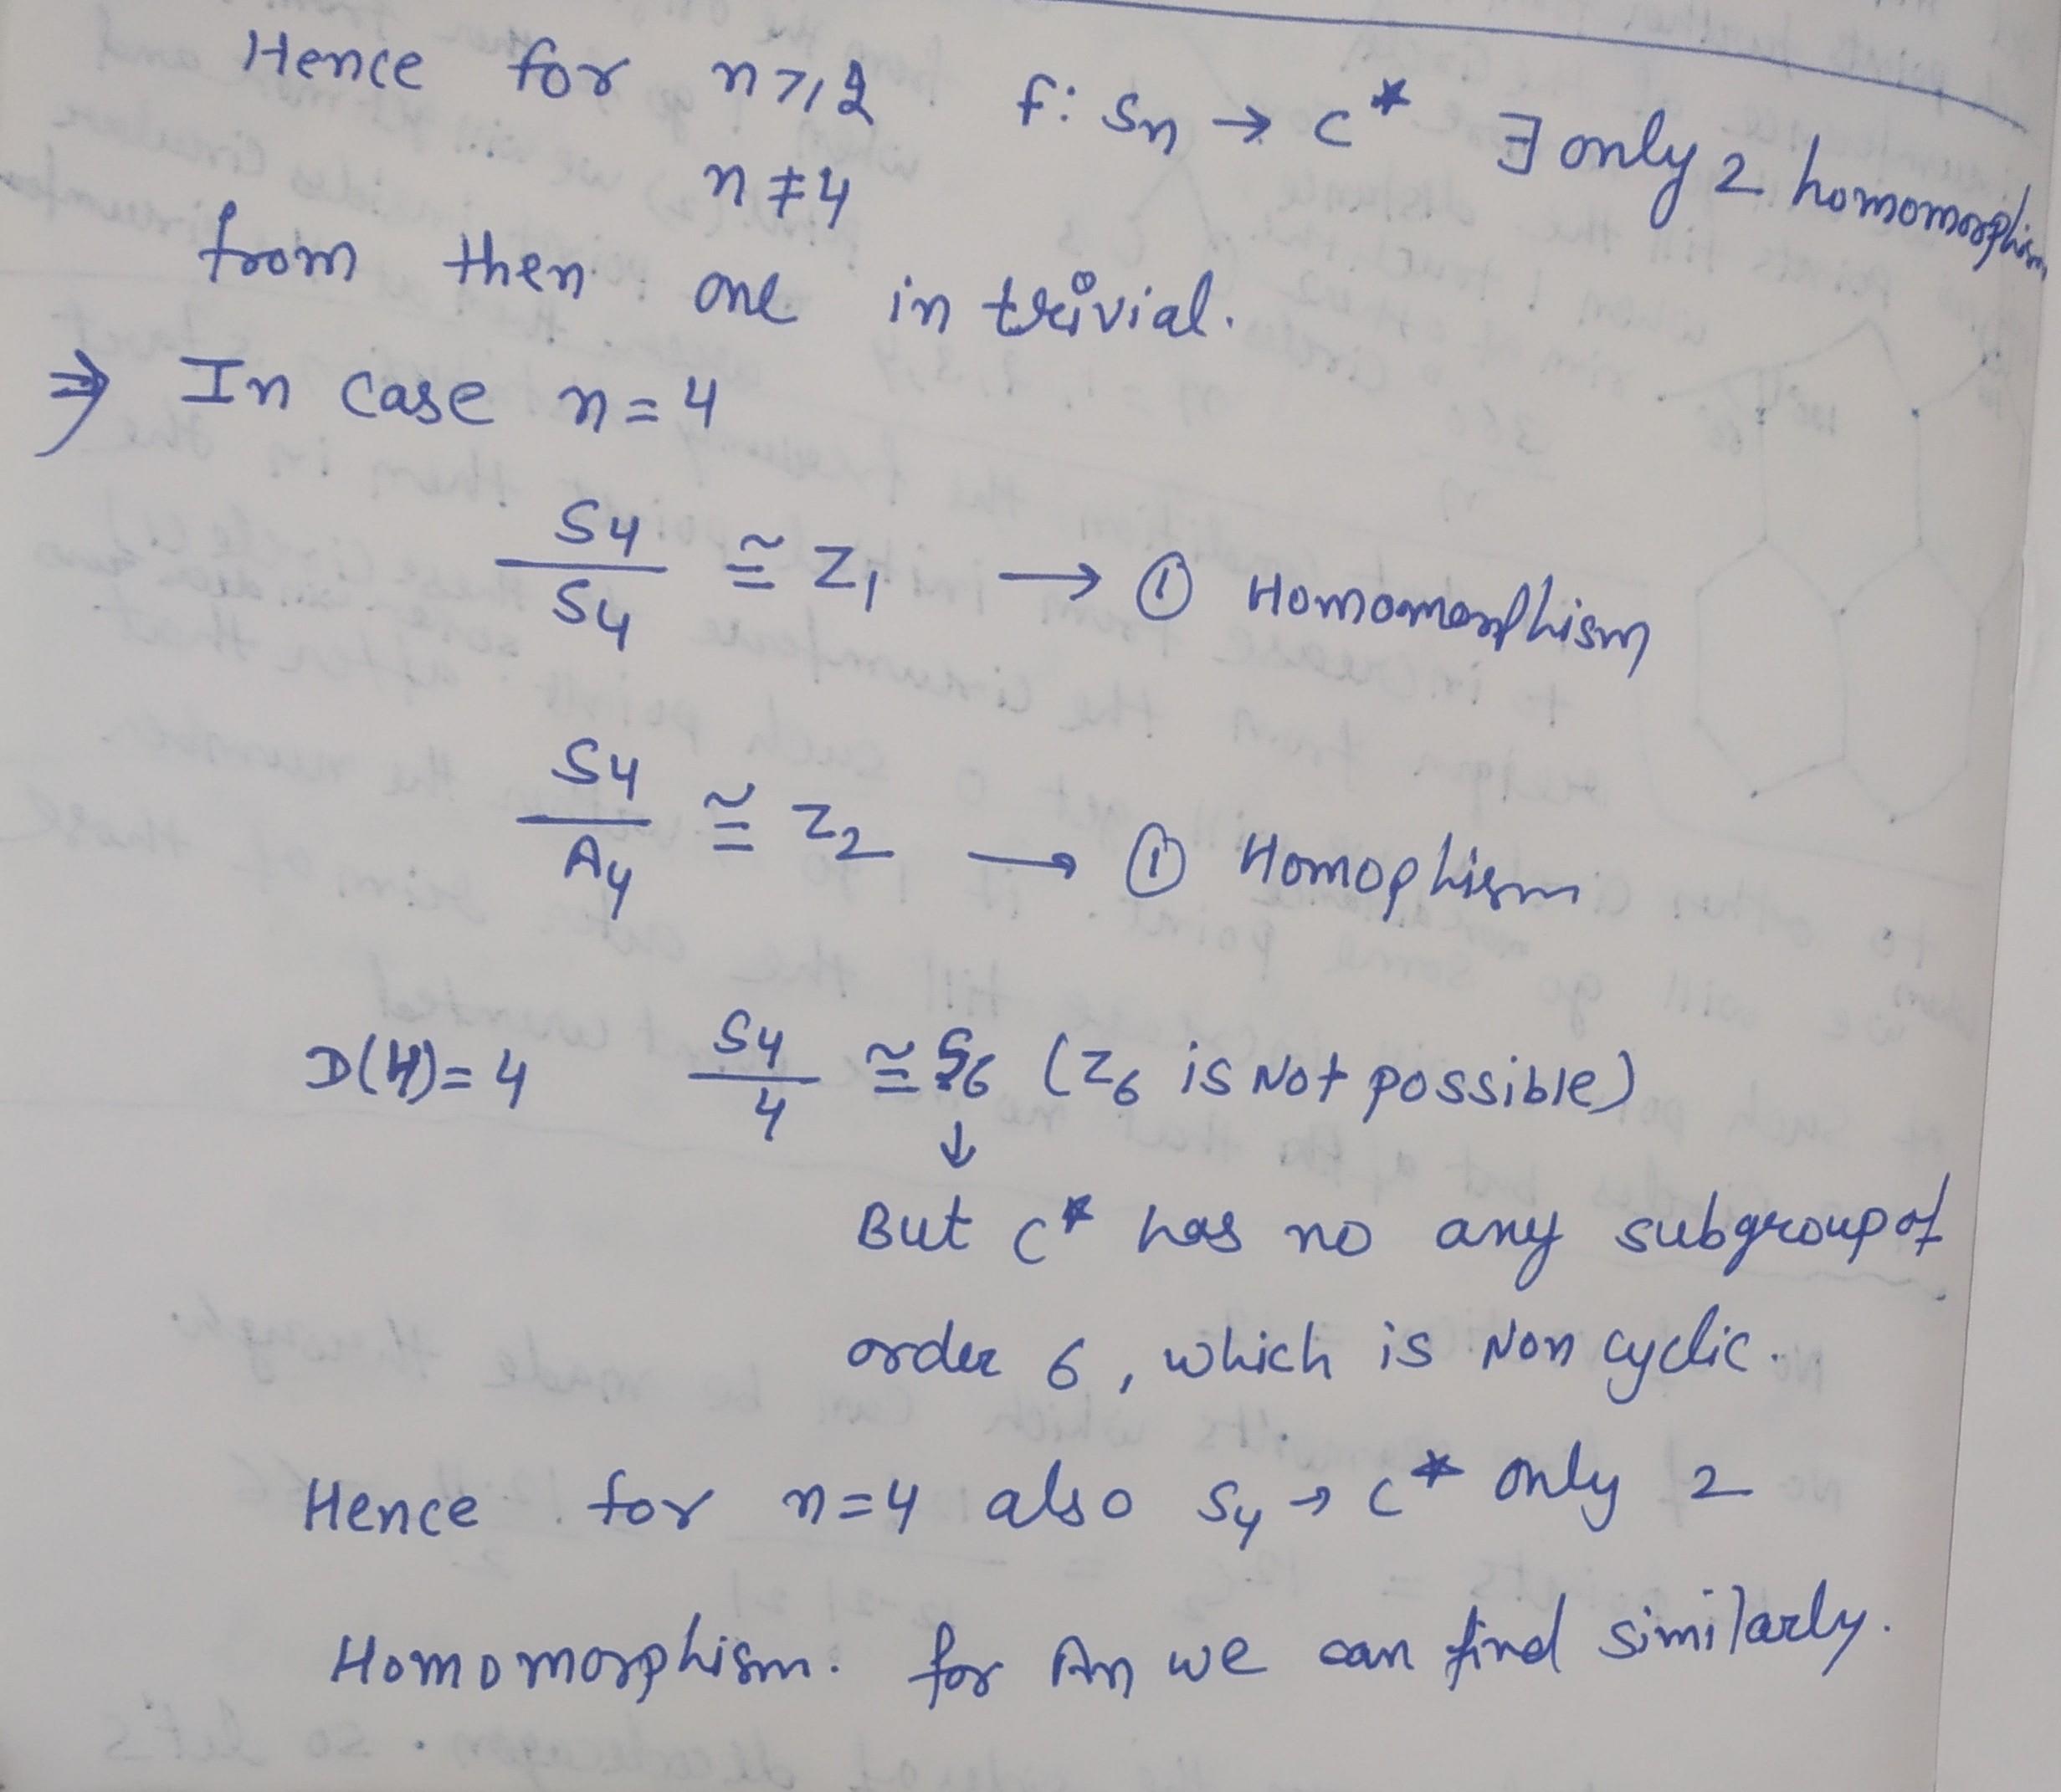 Hence for n ≥ 2 f: Sn → C* ∃ only 2 homomorphism
n ≠ 4
from then one in trivial.
⇒ In case n = 4
S4/S4 ≅ Z1 → ① Homomorphism
S4/A4 ≅ Z2 → ① Homophism
O(H) = 4 S4/4 ≅ S6 (Z6 is Not possible)
↓
But C* has no any subgroup of
order 6, which is Non cyclic.
Hence for n=4 also S4 → C* only 2
Homomorphism. for An we can find similarly.